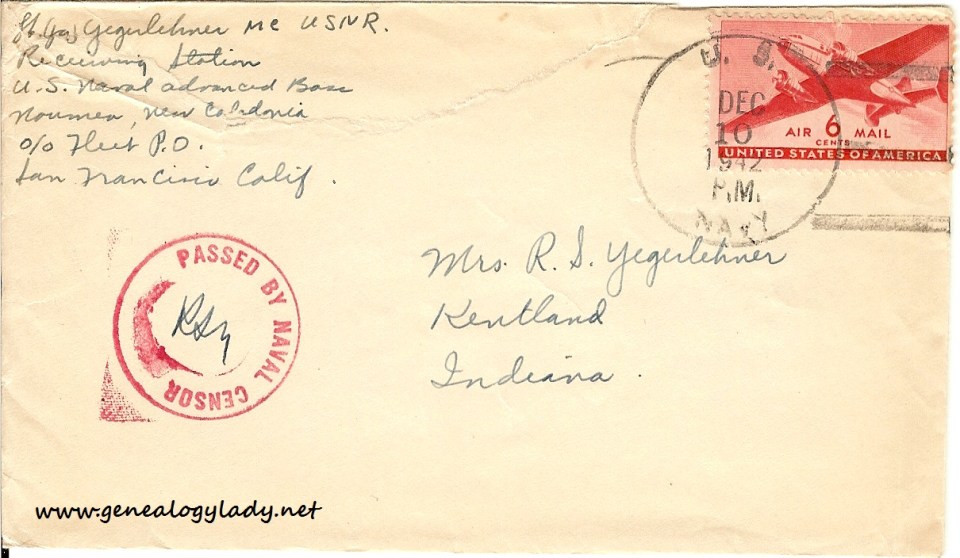 Lt. (jg) Yegerlehner MC USNR.
Receiving Station
U.S. Naval advanced Base
Noumea, New Caledonia
c/o Fleet P.O.
San Francisco Calif.
U. S.
DEC
10
1942
P.M.
NAVY
AIR 6 MAIL
CENTS
UNITED STATES OF AMERICA
Mrs. R. S. Yegerlehner
Kentland
Indiana.
PASSED BY NAVAL CENSOR
RSY
www.genealogylady.net